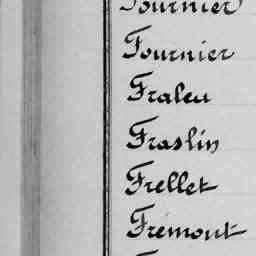 Fournier
Fournier
Fraleu
Fraslin
Frellet
Frémont